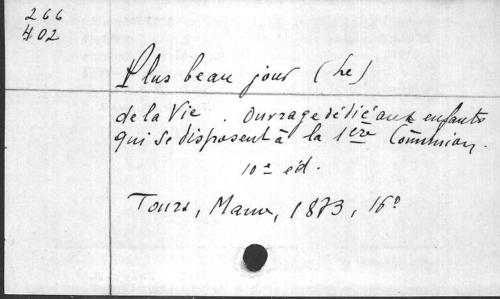 266
402
Plus beau jour (Le)
de la Vie. Ouvrage dédié aux enfants
qui se disposent à la 1ère Communion.
10e éd.
Tours, Mame, 1873, 16o